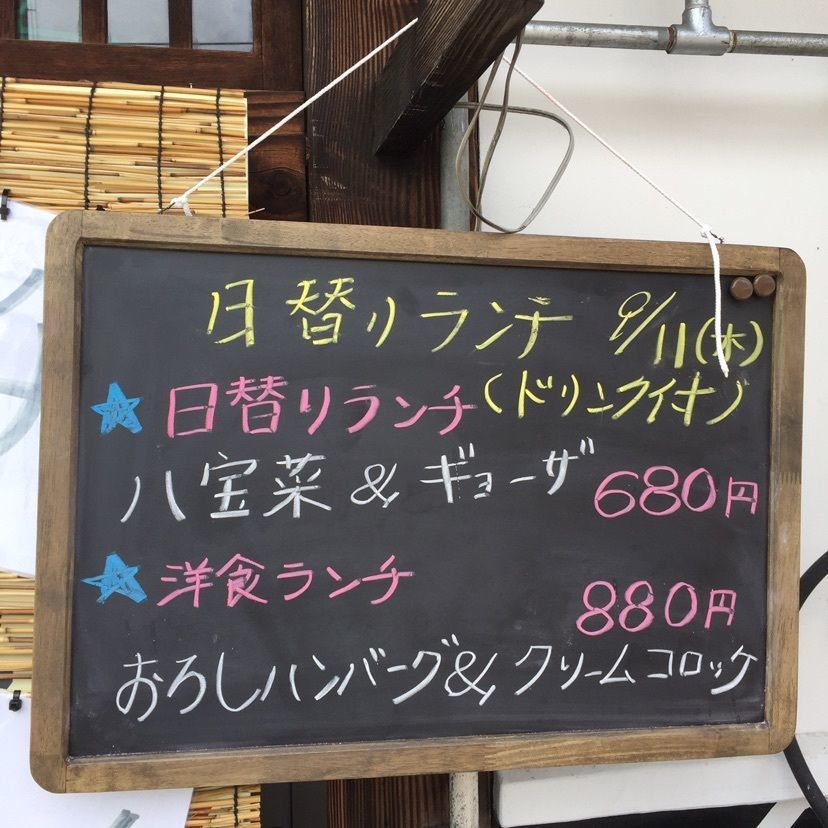 日替りランチ 9/11(木)
★日替りランチ(ドリンクイオ)
八宝菜&ギョーザ 680円
★洋食ランチ 880円
おろしハンバーグ&クリームコロッケ